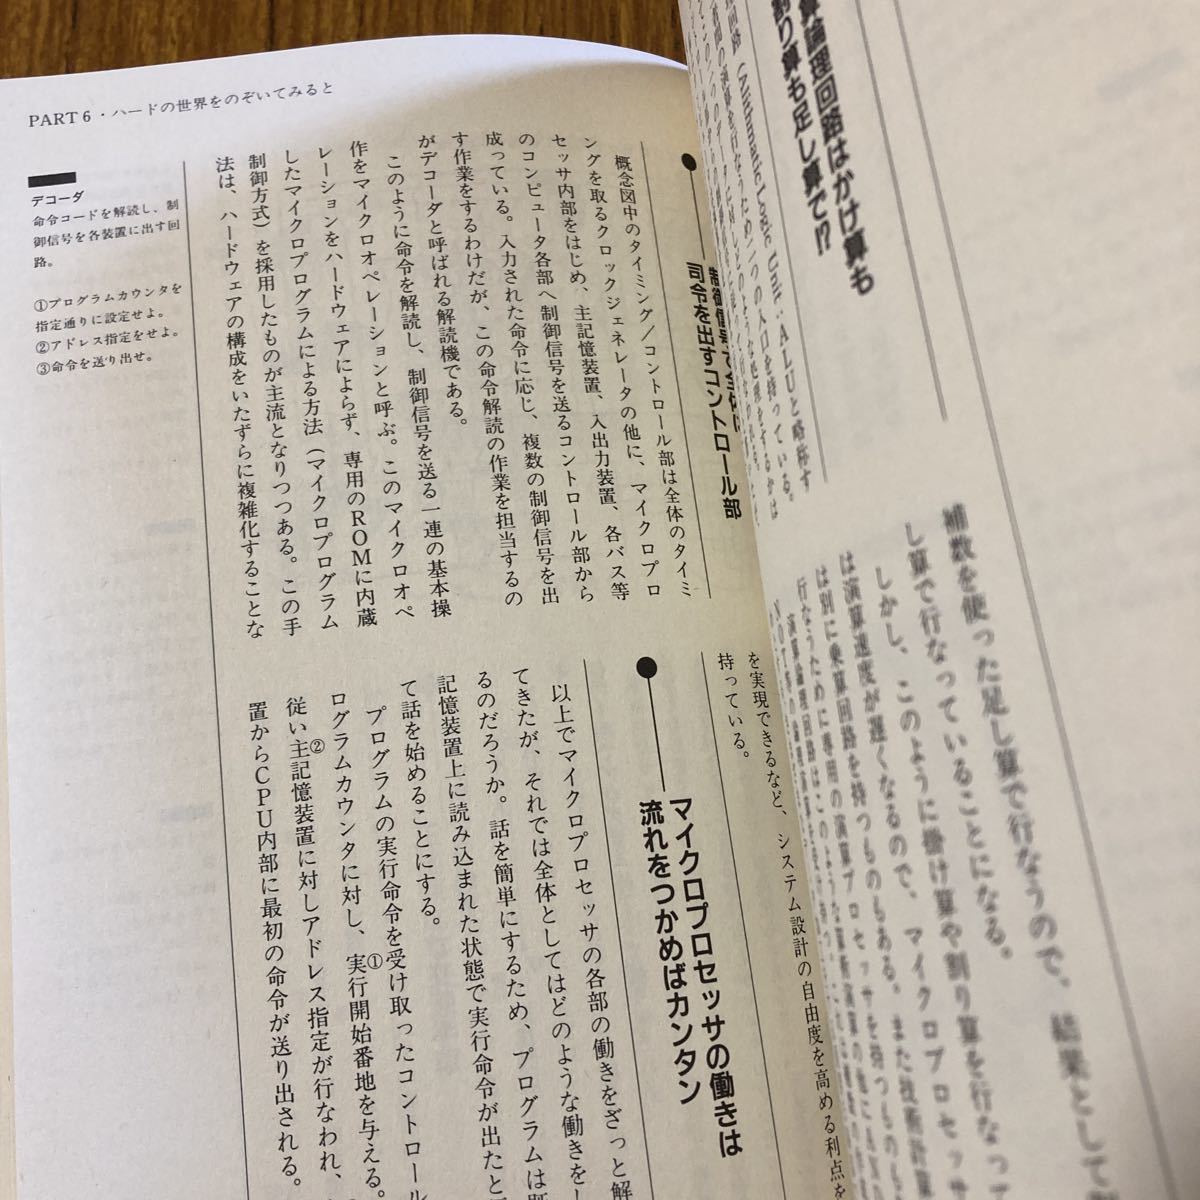 算論理回路はかけ算も
割り算も足し算で!?
補数を使った足し算で行なうので、結果として
し算で行なっていることになる。
しかし、このように掛け算や割り算を行なっ
は演算速度が遅くなるので、マイクロプロセッサ
は別に乗算回路を持つものもある。また技術計算
行なうために専用の演算プロセッサを持つものも
PART 6・ハードの世界をのぞいてみると
制御信号で全体に
司令を出すコントロール部
概念図中のタイミング/コントロール部は全体のタイミ
ングを取るクロックジェネレータの他に、マイクロプロ
セッサ内部をはじめ、主記憶装置、入出力装置、各バス等
のコンピュータ各部へ制御信号を送るコントロール部から
成っている。入力された命令に応じ、複数の制御信号を出
す作業をするわけだが、この命令解読の作業を担当するの
がデコーダと呼ばれる解読機である。
このように命令を解読し、制御信号を送る一連の基本操
作をマイクロオペレーションと呼ぶ。このマイクロオペ
レーションをハードウェアによらず、専用のROMに内蔵
したマイクロプログラムによる方法(マイクロプログラム
制御方式)を採用したものが主流となりつつある。この手
法は、ハードウェアの構成をいたずらに複雑化することな
を実現できるなど、システム設計の自由度を高める利点を
持っている。
マイクロプロセッサの働きは
流れをつかめばカンタン
以上でマイクロプロセッサの各部の働きをざっと解
てきたが、それでは全体としてはどのような働きをし
るのだろうか。話を簡単にするため、プログラムは既
記憶装置上に読み込まれた状態で実行命令が出たと
て話を始めることにする。
プログラムの実行命令を受け取ったコントロール
ログラムカウンタに対し、実行開始番地を与える。①
従い主記憶装置に対しアドレス指定が行なわれ、②
置からCPU内部に最初の命令が送り出される。
デコーダ
命令コードを解読し、制
御信号を各装置に出す回
路。
①プログラムカウンタを
指定通りに設定せよ。
②アドレス指定をせよ。
③命令を送り出せ。